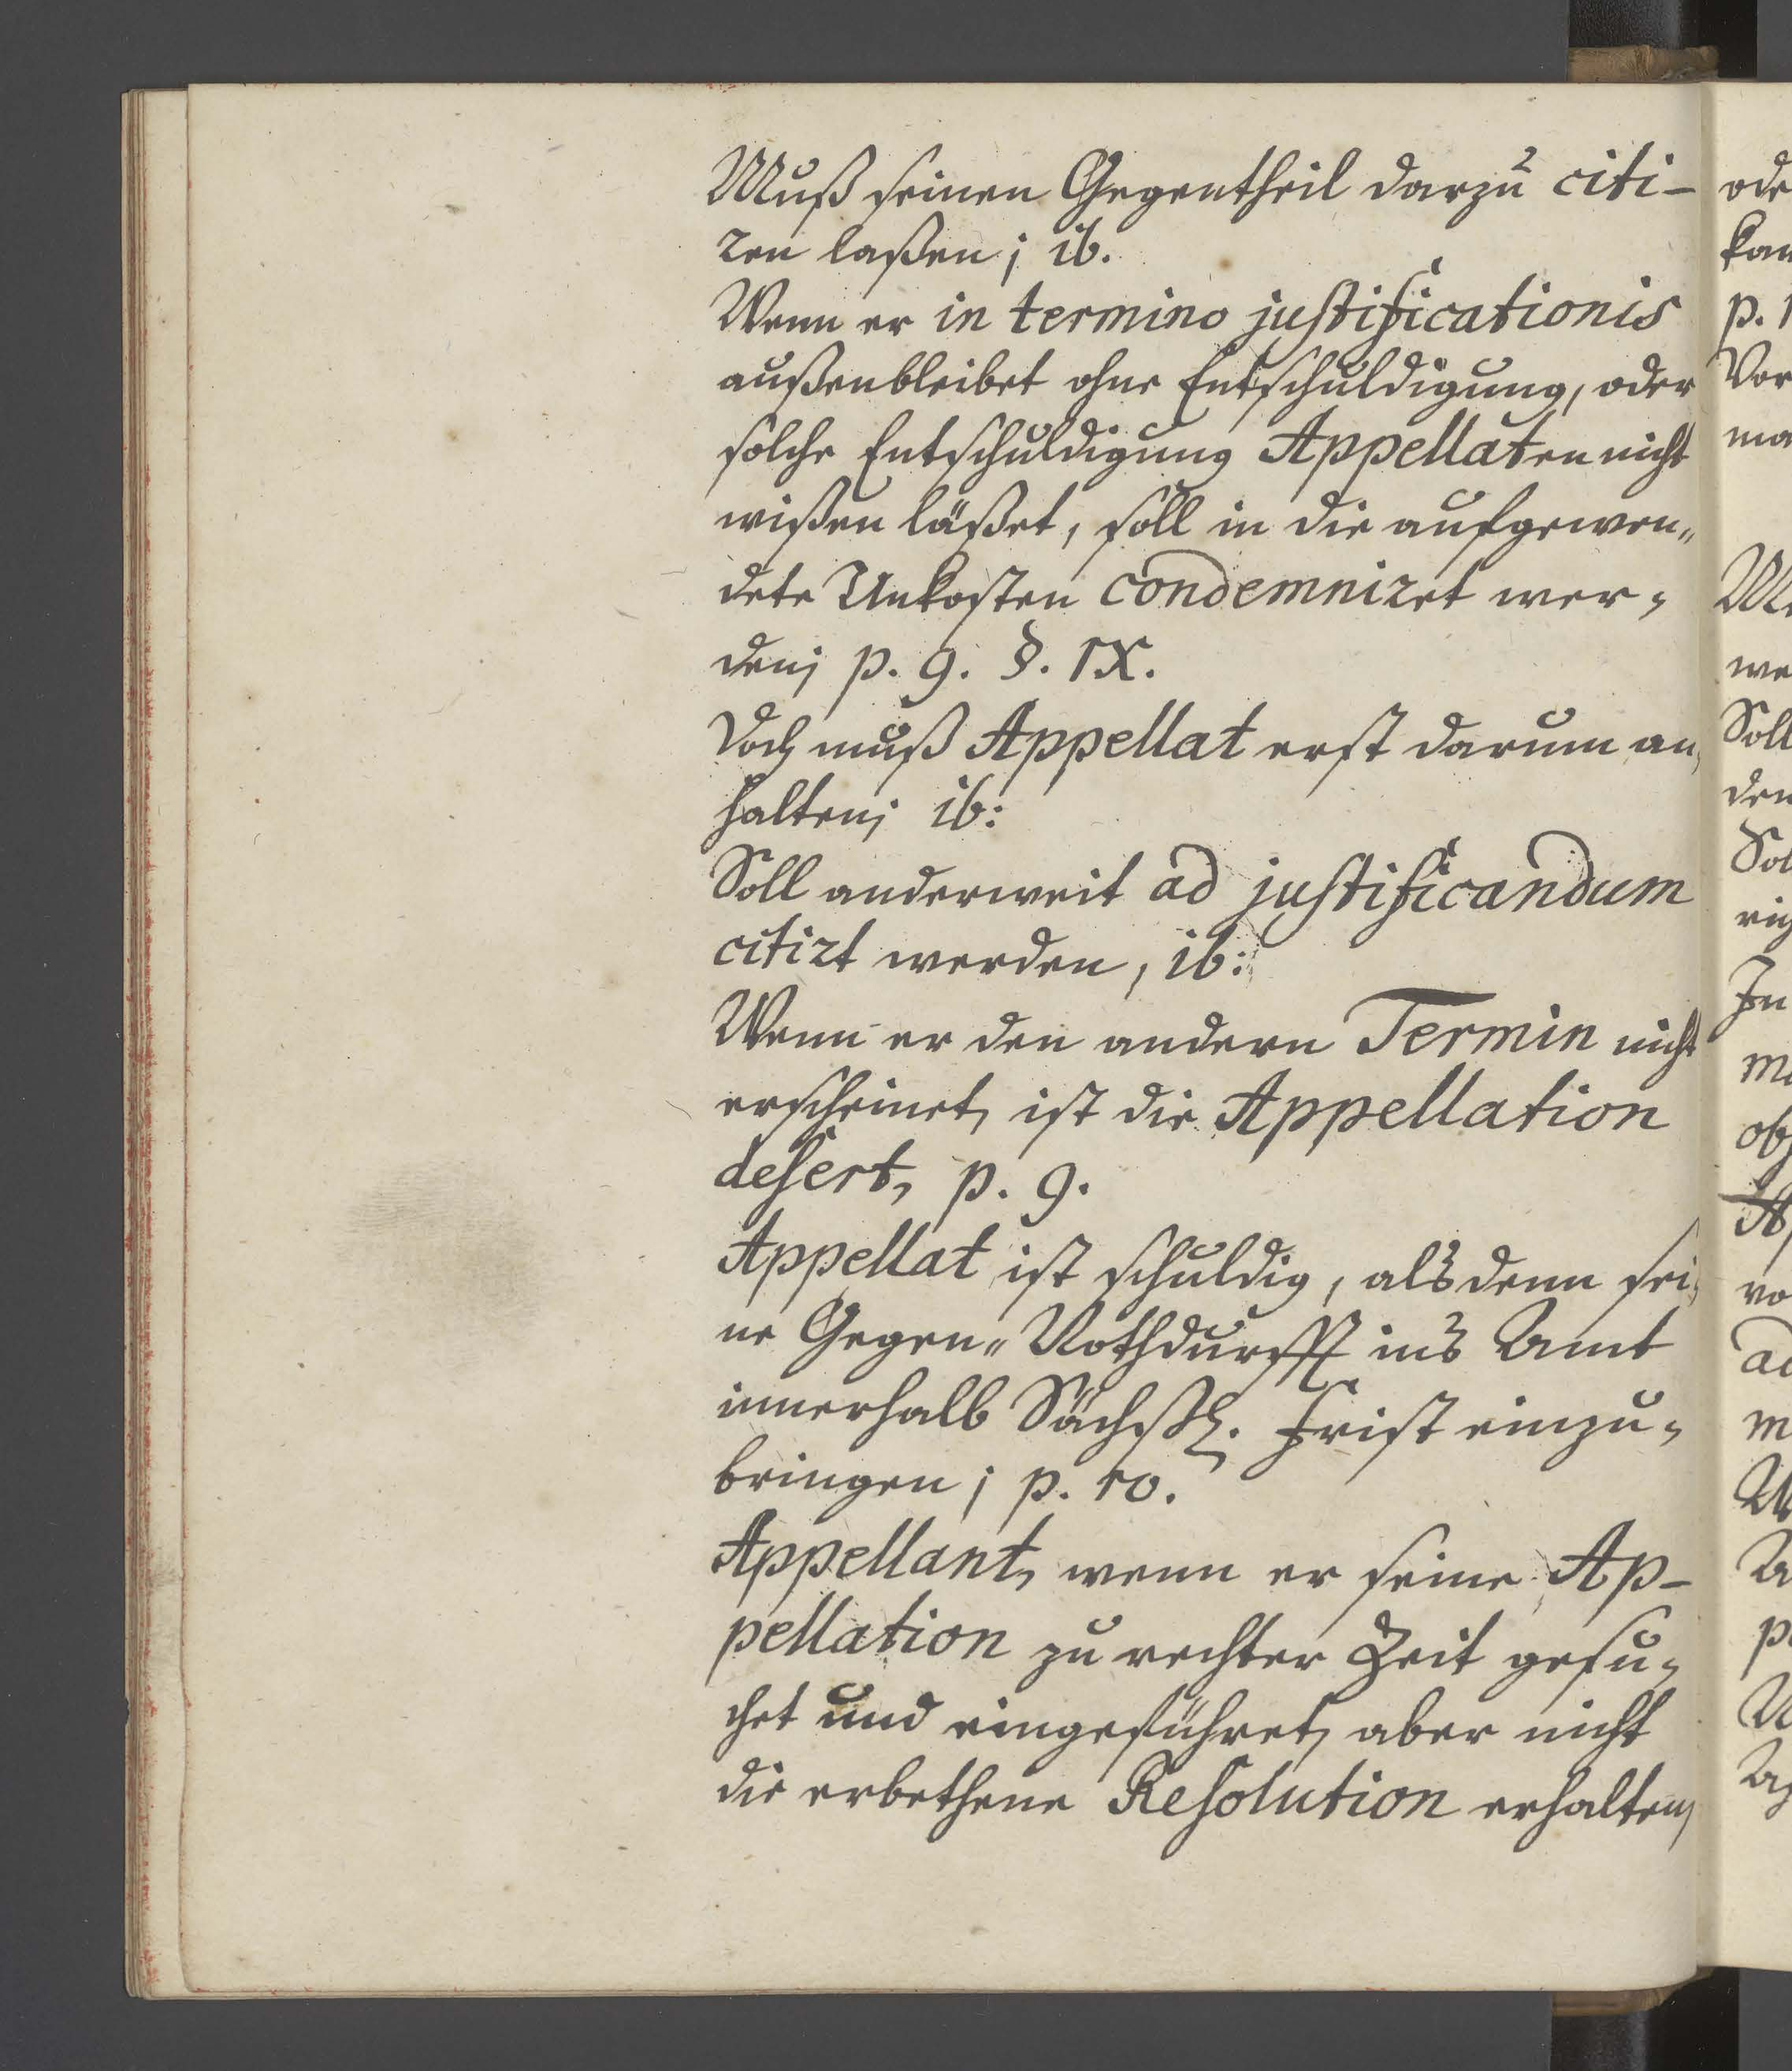 Muß seinen Gegentheil darzu citi-
ren laßen; ib.
Wenn er in termino justificationis
außenbleibet ohne Entschuldigung, oder
solche Entschuldigung Appellaten nicht
wißen läßet, soll in die aufgewen„
dete Unkosten condemniret wer„
den; p. 9. §. IX.
Doch muß Appellat erst darum an„
halten; ib:
Soll anderweit ad justificandum
citirt werden, ib:
Wenn er den andern Termin nicht
erscheinet, ist die Appellation
desert, p. 9.
Appellat ist schuldig, alsdenn sei„
ne Gegen„Nothdurfft ins Amt
innerhalb Sächßl. Frist einzu„
bringen; p. 10.
Appellant, wenn er seine Ap-
pellation zu rechter Zeit gesu„
chet und eingeführet, aber nicht
die erbethene Resolution erhalten,